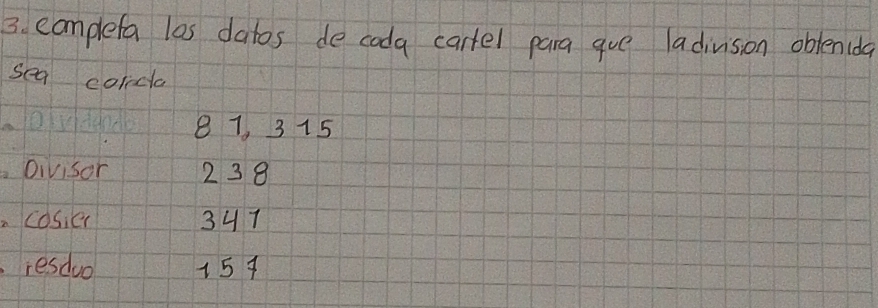 3. completa los datos de cada cartel para que la division obtenida
sea correcta
. Dividendo 81,315
. Divisor 238
. cosier 341
. resduo 157